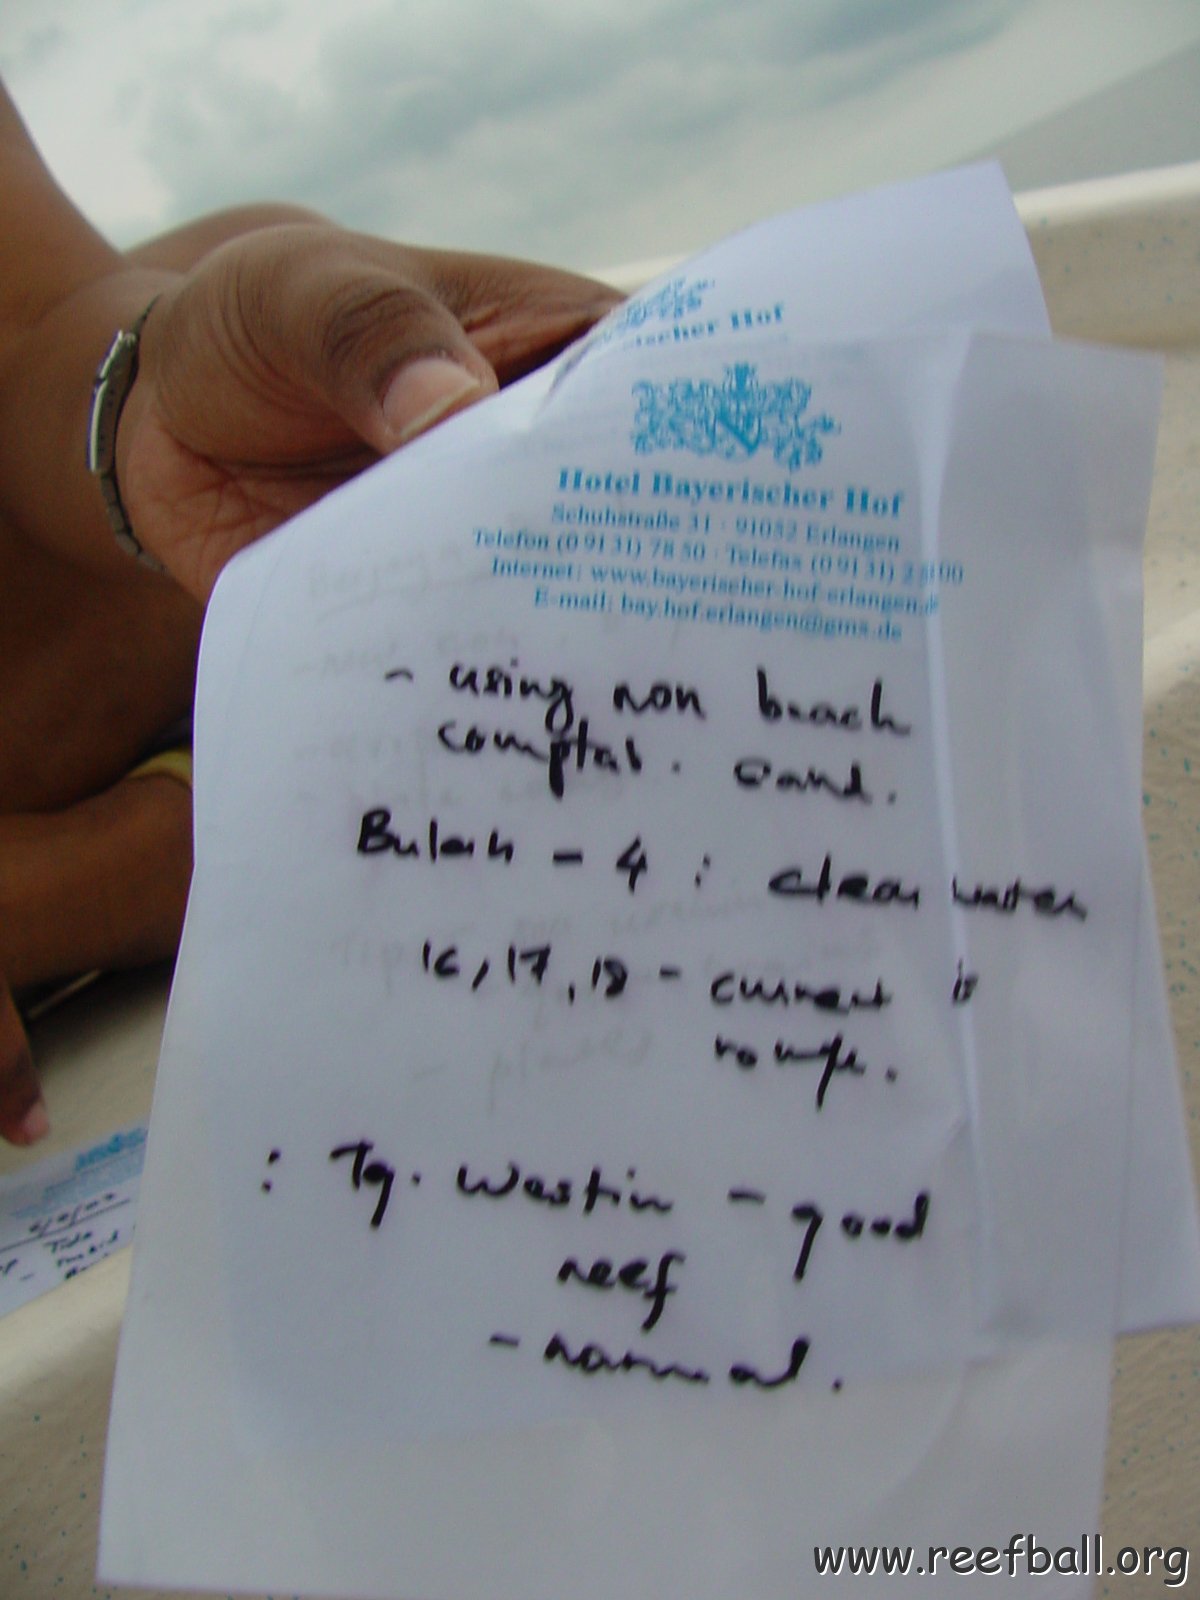 scher Hof
Hotel Bayerischer Hof
Schuhstraße 31 · 91052 Erlangen
Telefon (0 91 31) 78 50 · Telefax (0 91 31)
Internet: www.bayerischer-hof-erlangen.de
E-mail: bay.hof.erlangen@gmx.de
- using non beach
sand.
- 4 : clear water
16, 17, 18 - current is
rough.
: Tg. Westin - good
reef
- normal.
Tide
www.reefball.org